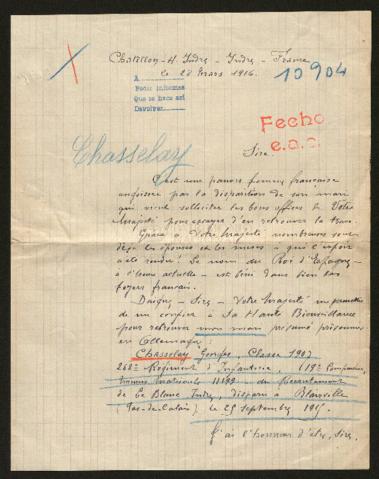 Chatillon-s. Indre - Indre - France
le 28 Mars 1916.
10904
A
Podir informes
Que se hace así
Devolver
Fecho
e.a.a.
Chasselay
Sire.
C'est une pauvre femme française
angoissée par la disparition de son mari
qui vient solliciter les bons offices de Votre
Majesté pour essayer d'en retrouver la trace.
Grâce à Votre Majesté nombreuses sont
déjà les épouses et les mères à qui l'espoir
a été rendu. Le nom du Roi d'Espagne
à l'heure actuelle - est béni dans bien des
foyers français.
Daigne - Sire - Votre Majesté me permettre
de me confier à Sa Haute Bienveillance
pour retrouver mon mari présumé prisonnier
en Allemagne:
Chasselay Georges, Classe 1907
268e Régiment d'Infanterie (19e Compagnie,
numéro matricule 11192 - du Recrutement
de Le Blanc Indre, disparu à Blairville
(Pas-de-Calais) le 25 septembre 1915.
J'ai l'honneur d'être, Sire,